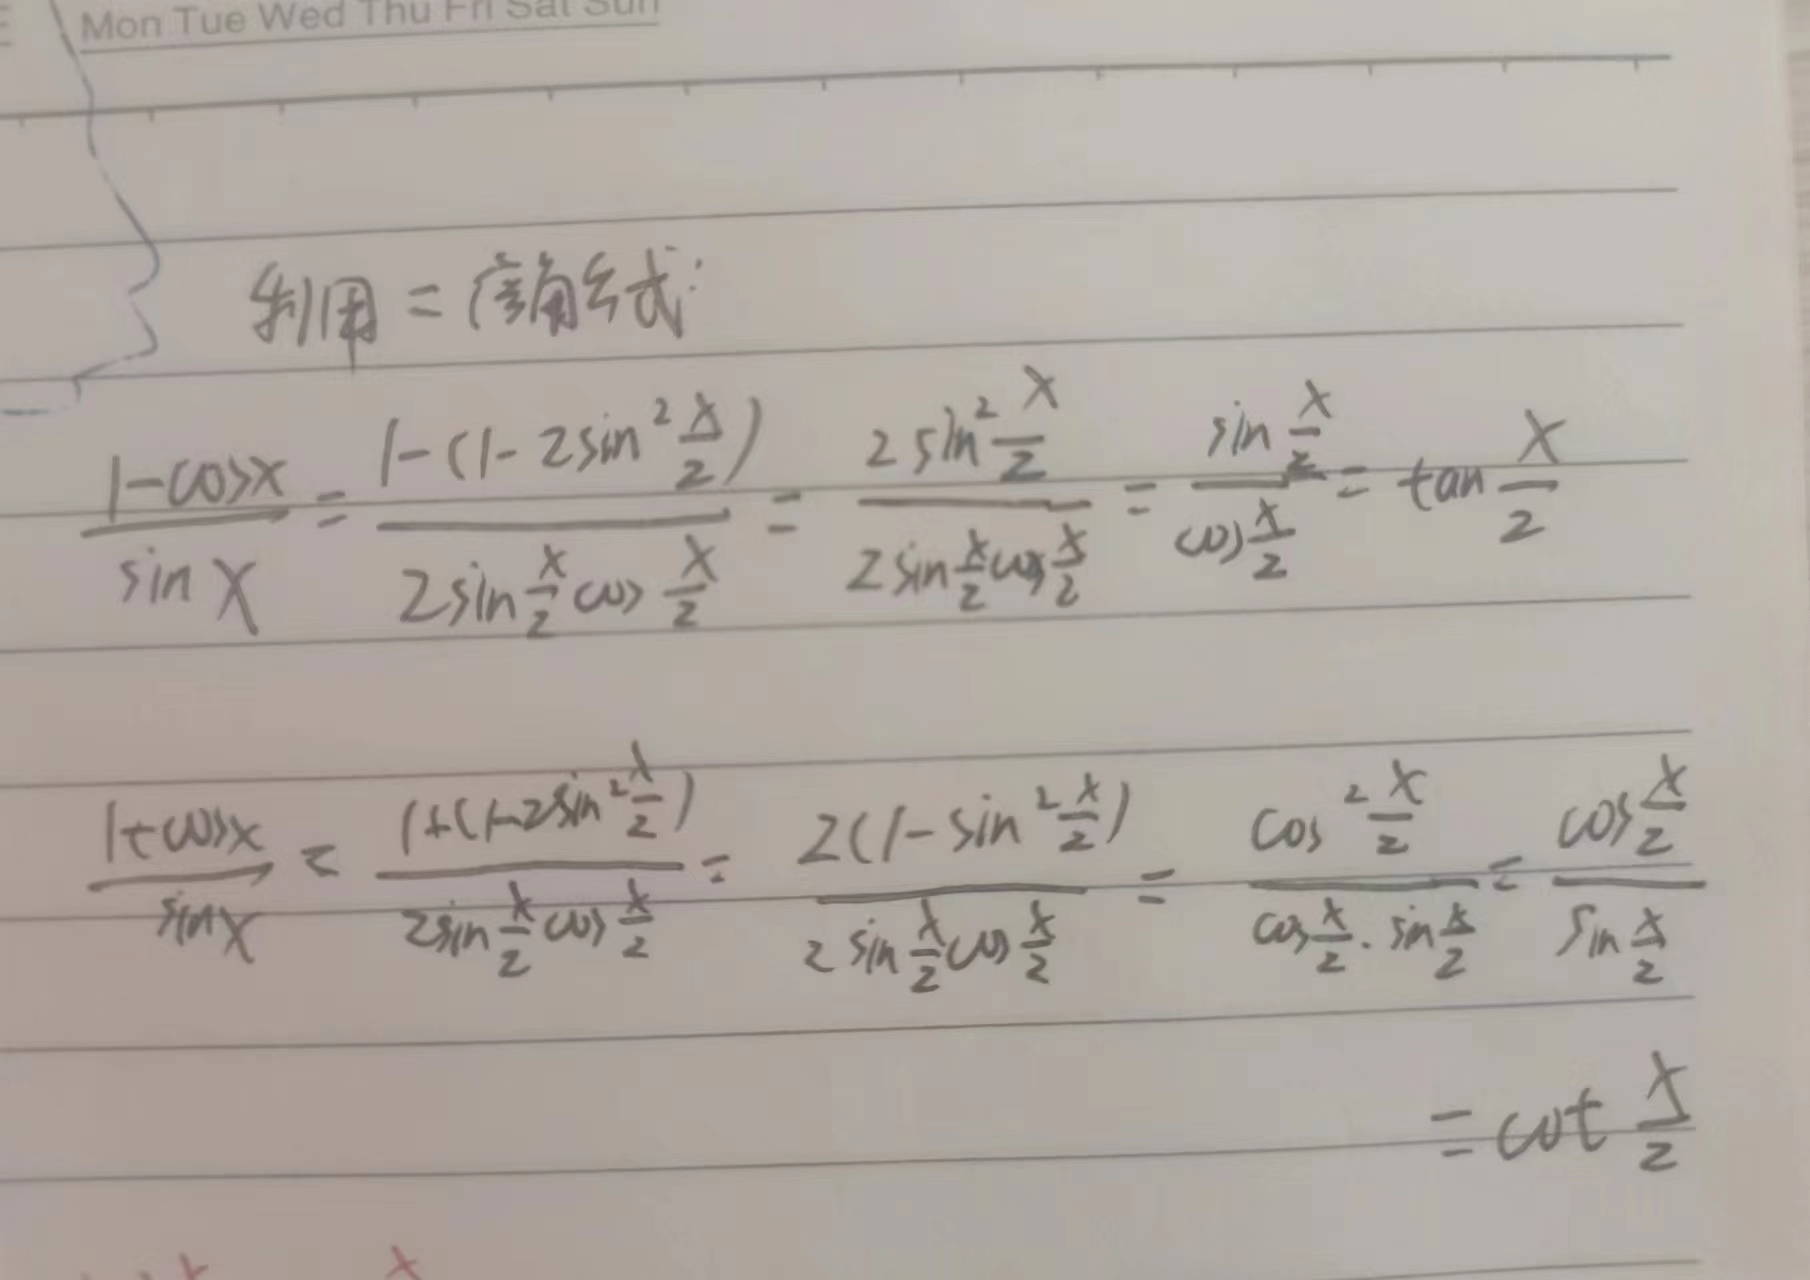 Mon Tue Wed Thu Fri Sat Sun
利用二倍角公式:
\frac{1-\cos x}{\sin x} = \frac{1-(1-2\sin^2\frac{x}{2})}{2\sin\frac{x}{2}\cos\frac{x}{2}} = \frac{2\sin^2\frac{x}{2}}{2\sin\frac{x}{2}\cos\frac{x}{2}} = \frac{\sin\frac{x}{2}}{\cos\frac{x}{2}} = \tan\frac{x}{2}
\frac{1+\cos x}{\sin x} = \frac{1+(1-2\sin^2\frac{x}{2})}{2\sin\frac{x}{2}\cos\frac{x}{2}} = \frac{2(1-\sin^2\frac{x}{2})}{2\sin\frac{x}{2}\cos\frac{x}{2}} = \frac{\cos^2\frac{x}{2}}{\cos\frac{x}{2}\cdot\sin\frac{x}{2}} = \frac{\cos\frac{x}{2}}{\sin\frac{x}{2}}
= \cot\frac{x}{2}